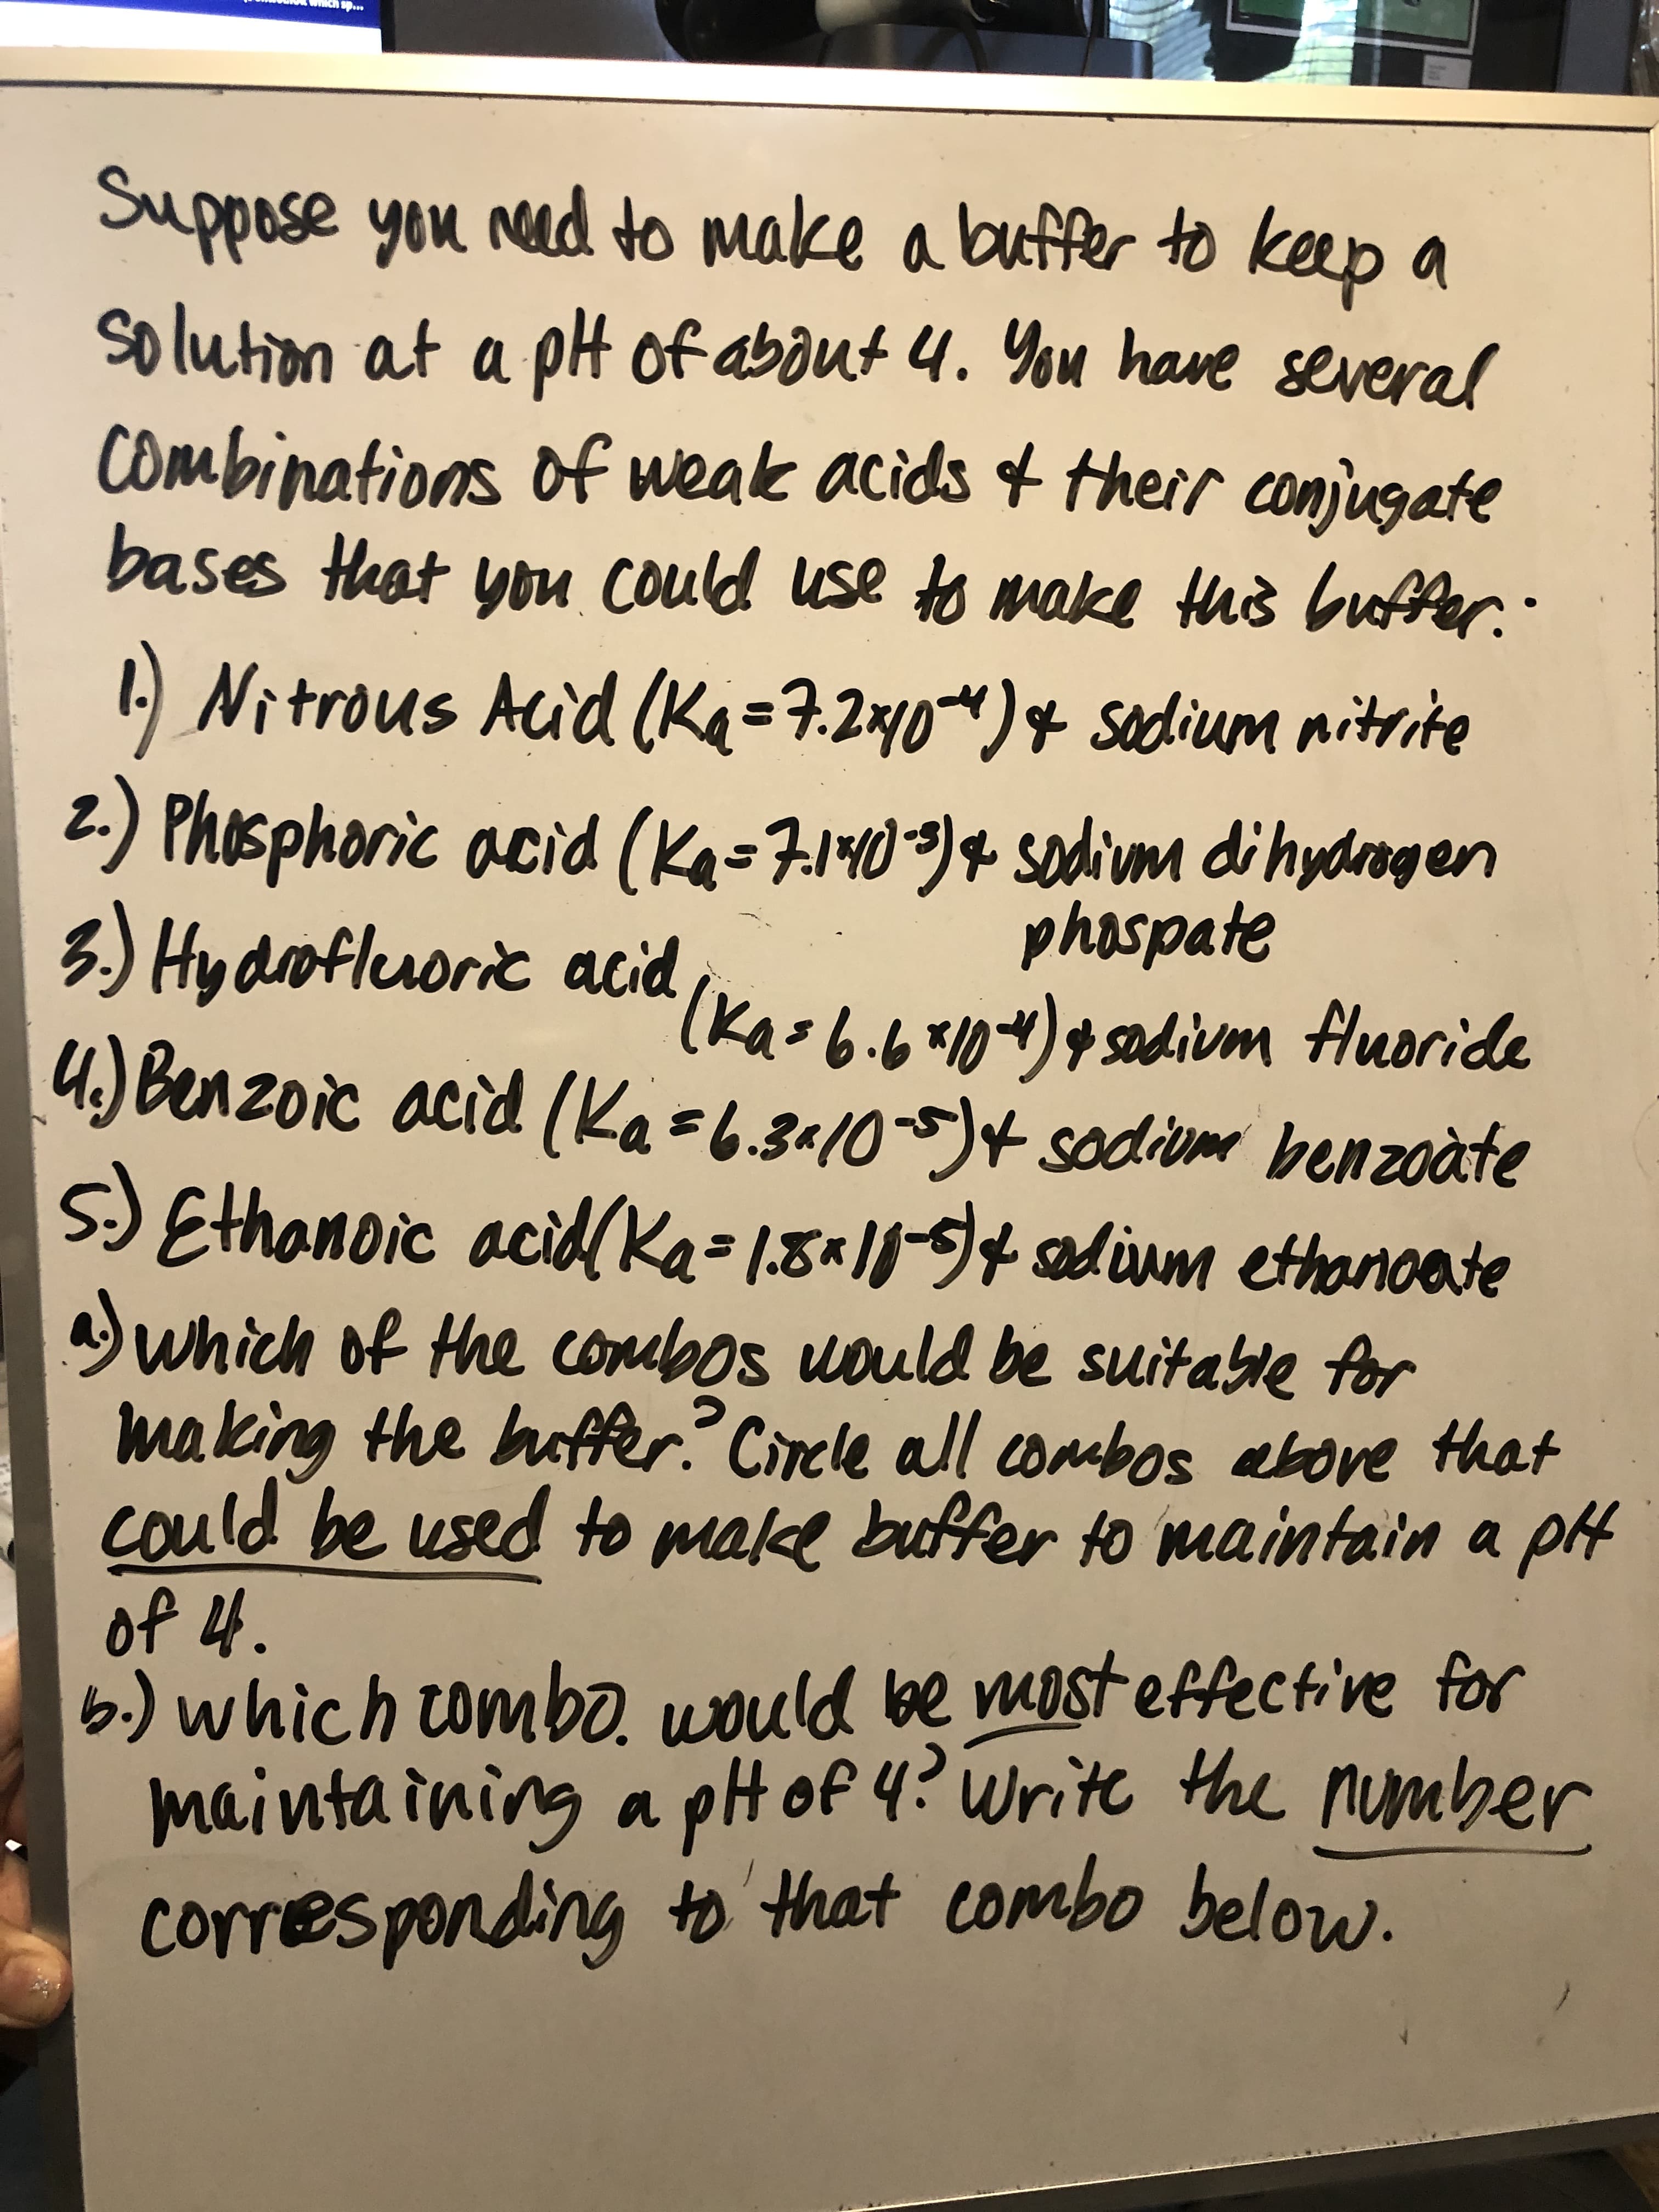 which sp...
Suppose you need to make a buffer to keep a
solution at a pH of about 4. You have several
combinations of weak acids & their conjugate
bases that you could use to make this buffer:
1.) Nitrous Acid (Ka=7.2×10⁻⁴) & sodium nitrite
2.) Phosphoric acid (Ka=7.1×10⁻³) & sodium dihydrogen
phospate
3.) Hydrofluoric acid (Ka=6.6×10⁻⁴) & sodium fluoride
4.) Benzoic acid (Ka=6.3×10⁻⁵) & sodium benzoate
5.) Ethanoic acid (Ka=1.8×10⁻⁵) & sodium ethanoate
a.) which of the combos would be suitable for
making the buffer? Circle all combos above that
could be used to make buffer to maintain a pH
of 4.
b.) which combo would be most effective for
maintaining a pH of 4? Write the number
corresponding to that combo below.